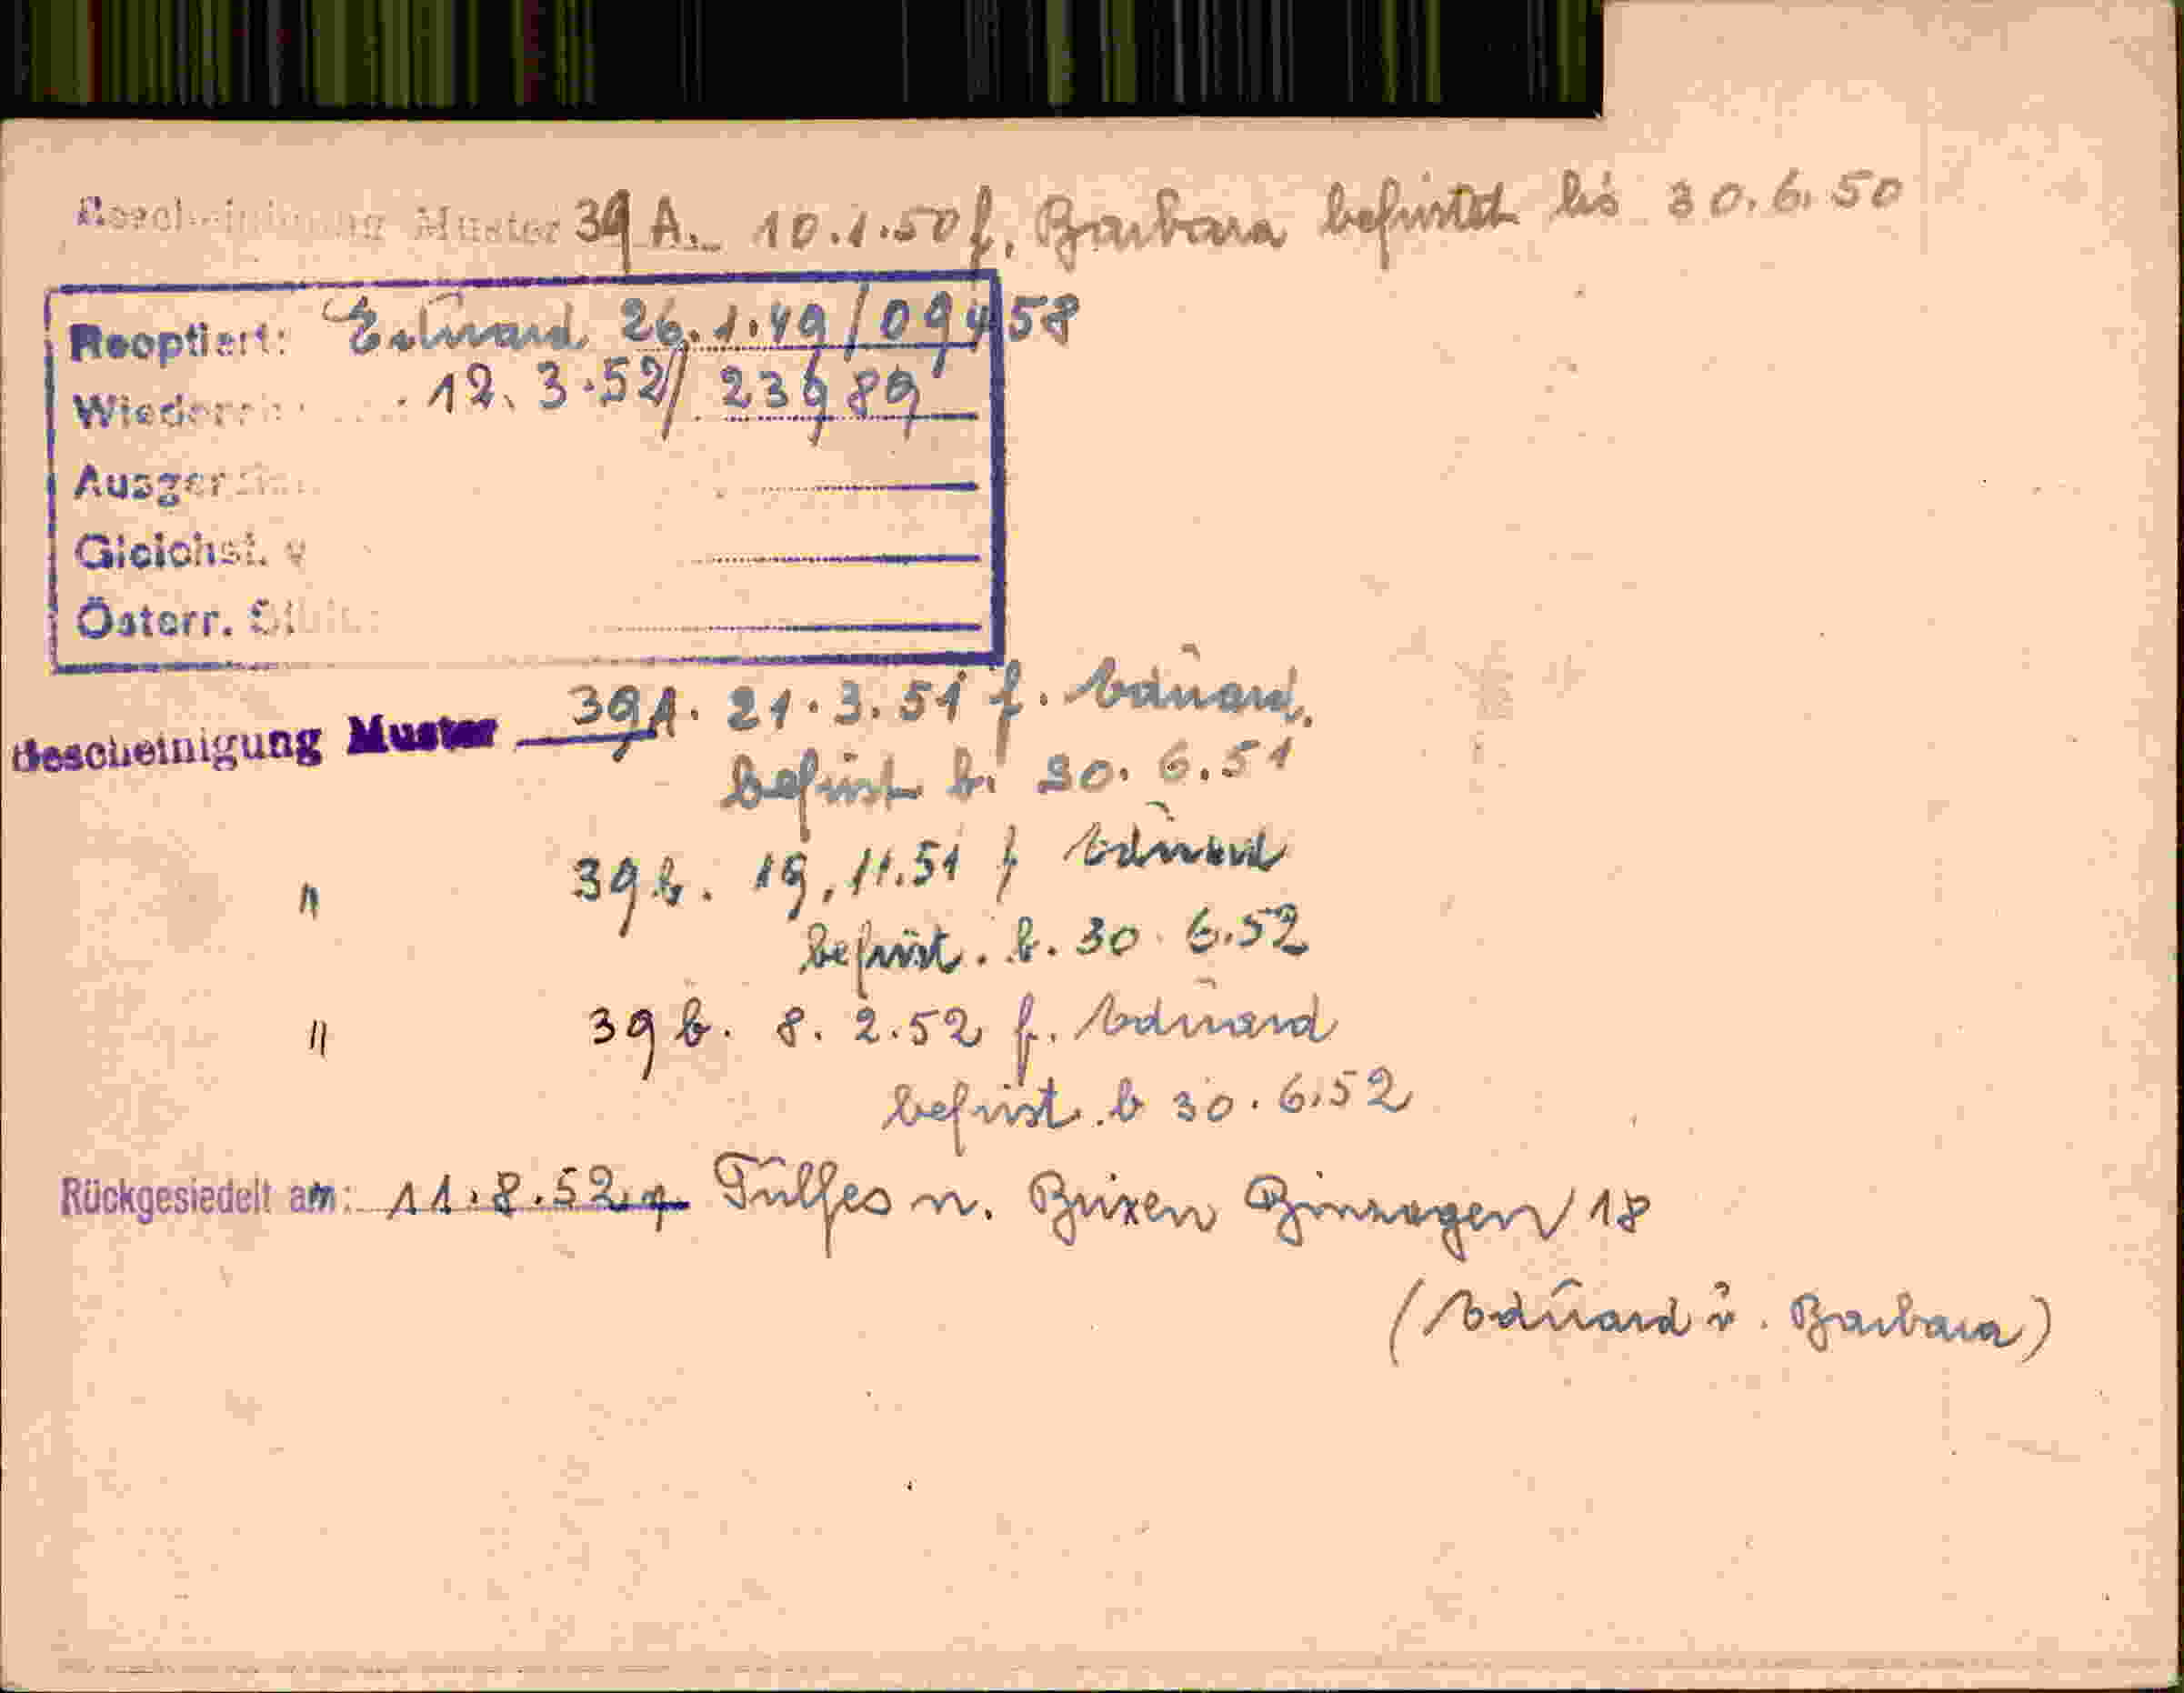 Bescheinigung Muster 39 A. 10.1.50 f. Barbara befristet bis 30.6.50
Reoptiert: Eduard 26.1.49/09458
12.3.52/
Österr.
Bescheinigung Muster 39A. 21.3.51 f. Eduard,
befrist. b. 30.6.51
" 39 b. 19.11.51 f Eduard
befrist. b. 30 6.52
" 39 b. 8. 2.52 f. Eduard
befrist. b 30.6.52
Rückgesiedelt am: 11.8.52 Tulfes n. Brixen 18
(Eduard u. Barbara)